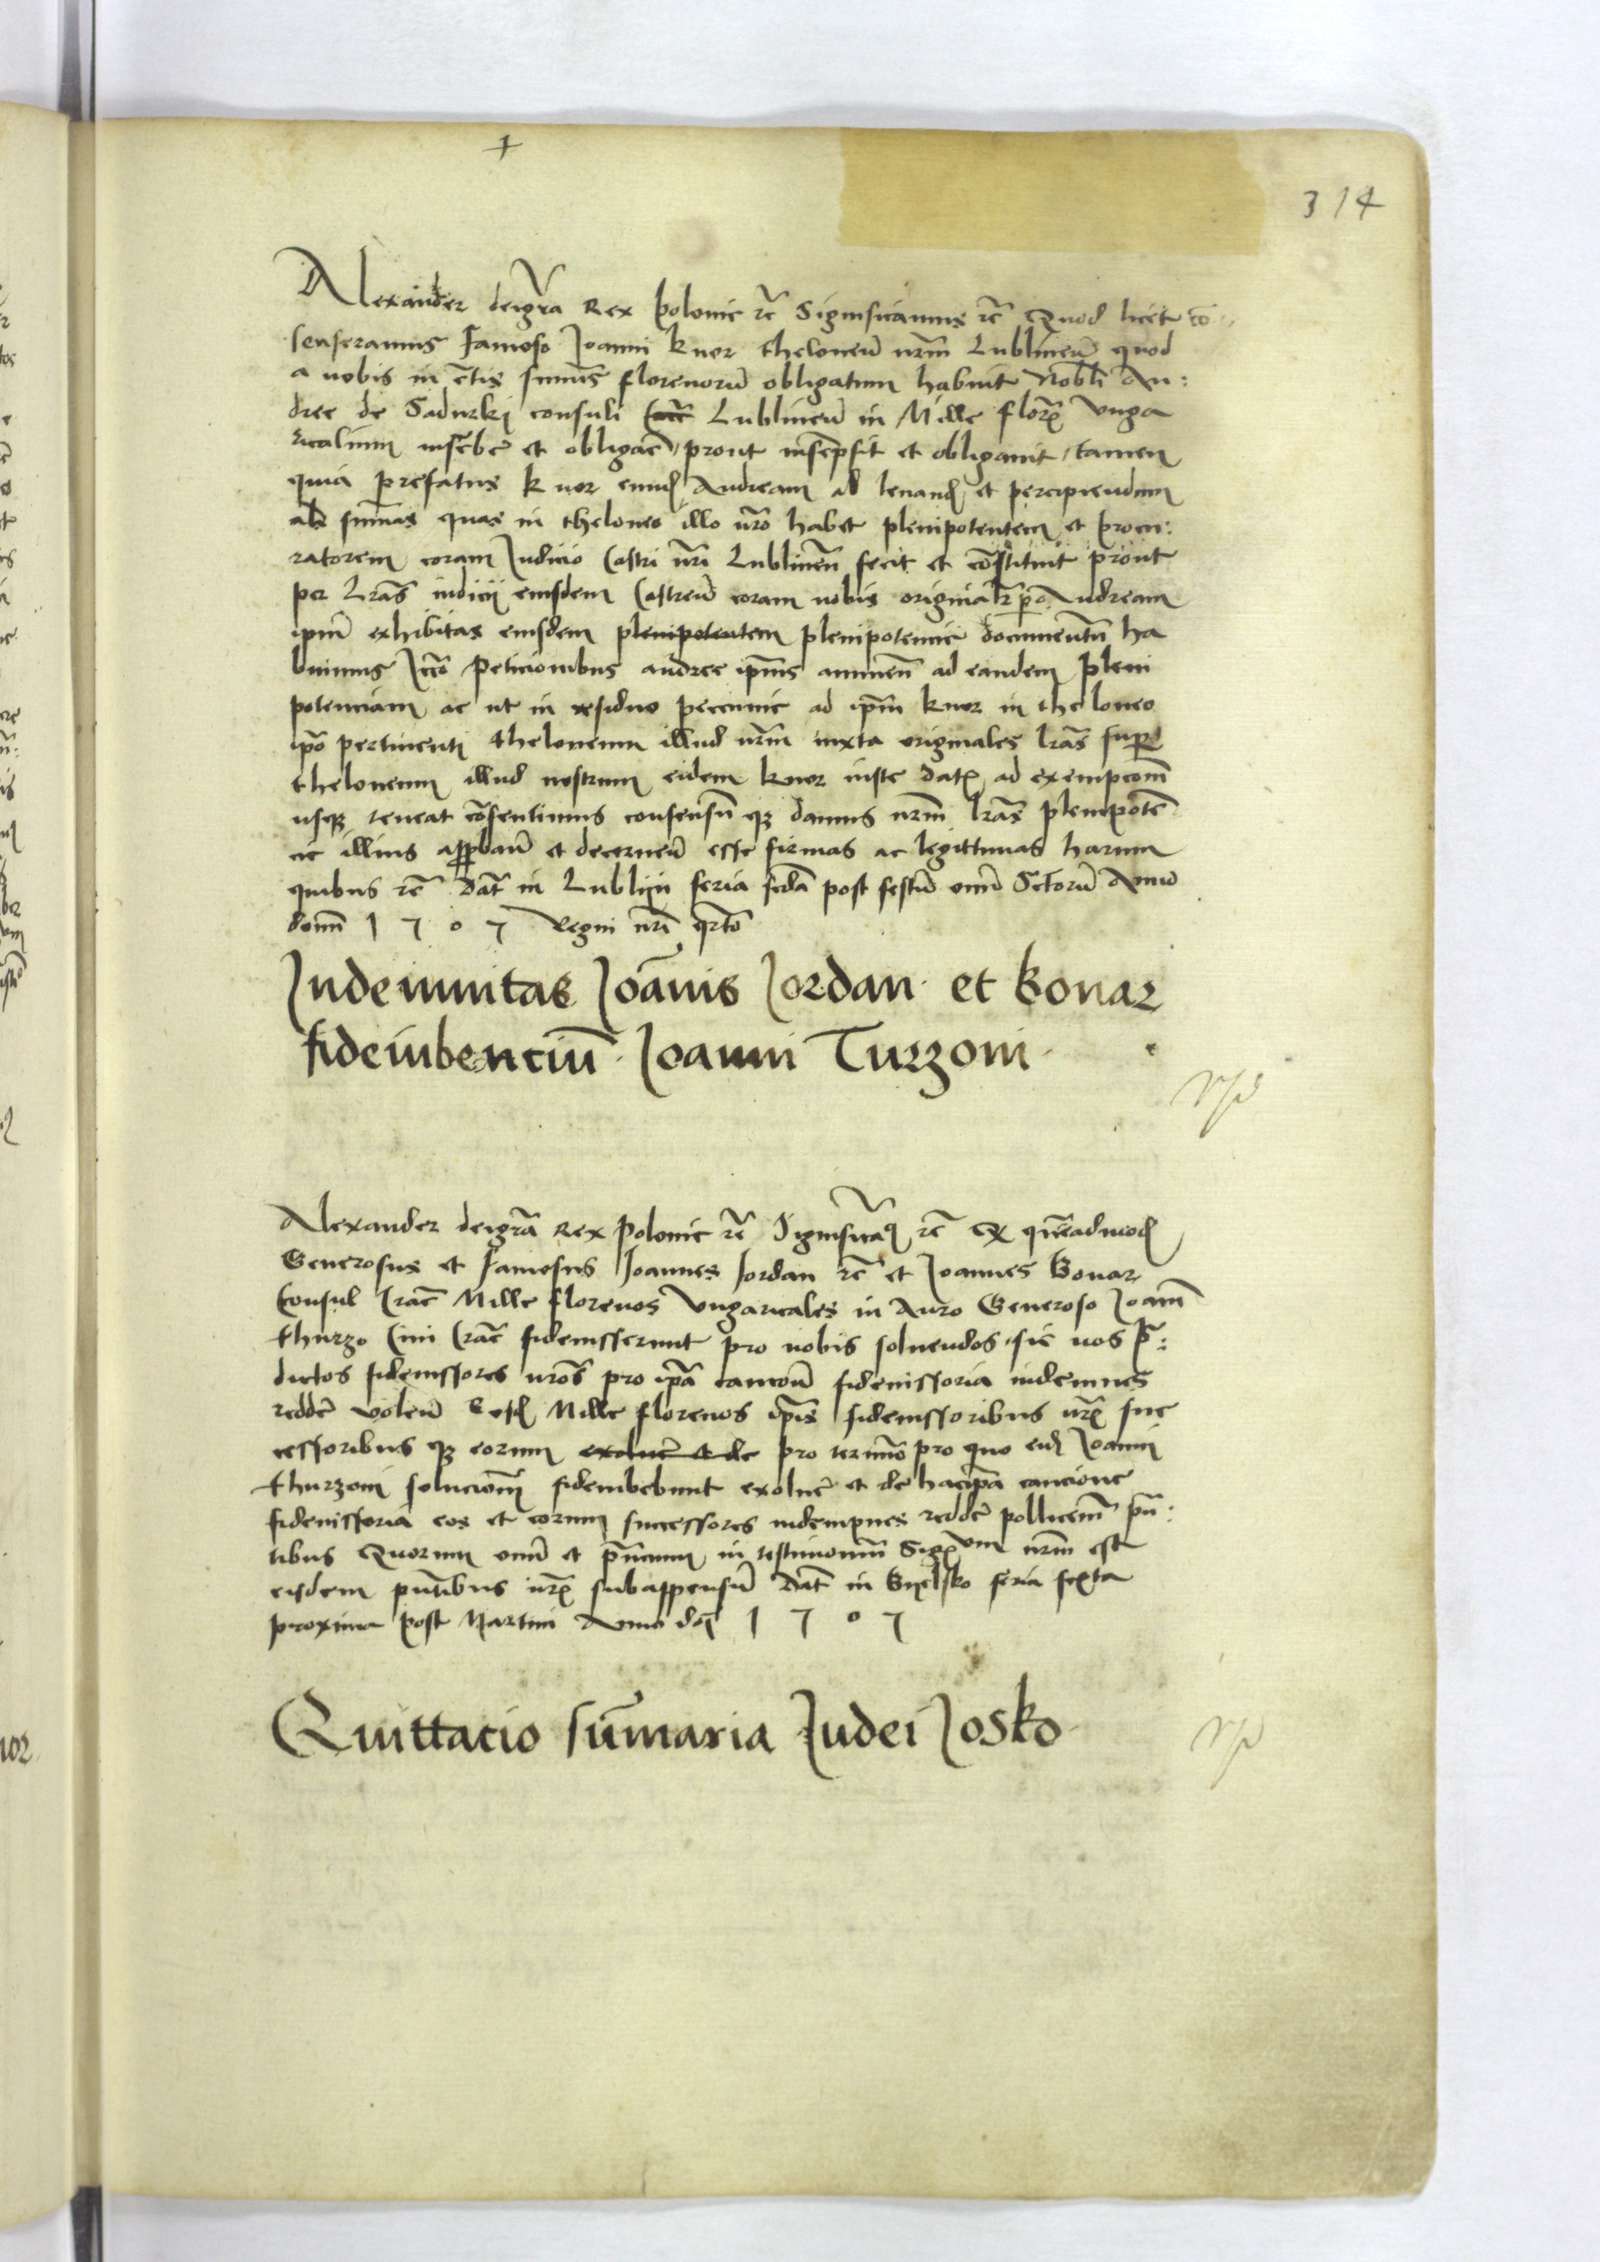 314
Alexander deigrā Rex polonie rc̄ Significamus rc̄ Quod licet cō
senseramus Famoso Joanni knor theloneū nrm̄ Lublineñ quod
a nobis in c̄tis summis florenorū obligatum habuit Nobli An:
dree de Sadurki consuli Lublineñ in Mille florꝭ vnga
ricalium inscr̄ber̄ et obligar̄ prout inscr̄psit et obligauit tamen
quia prefatus knor eund Andream ad leuand et percipiendum
als summas quas in theloneo illo nr̄o habet plenipotentem et procu:
ratorem coram Judicio Castri nr̄i Lublineñ fecit et cōstituit prout
per Lrās iudicij eiusdem Castreñ coram nobis originalr̄ p Andream
ipm̄ exhibitas eiusdem plenipotentem plenipotencie documentū ha
buimus Jccō Peticionibus andree ipiu͞s annueñ ad eandem pleni
potenciam ac ut in residuo peccunie ad ipm̄ knor in theloneo
ipō pertinenti theloneum illud nrm̄ iuxta originales lrās super
theloneum illud nostrum eidem knor iuste datꝭ ad exempcōm̄
usqꝫ teneat cōsentimus consensū qꝫ damus nrm̄ lrās plenipoten̄
cie illius approbañ et decerneñ esse firmas ac legittimas harum
quibus rc̄ Dat̄ in Lublijn feria scdā post festū om̄i Sctorū Anno
domī 1 5 0 5 Regni nr̄i qrto
Indemnitas Joānis Jordan et bonar
fideiubenciū Joanni Turzoni
Alexander deigrā Rex polonie rc̄ Significam rc̄ Qꝫ quēadmod
Generosus et Famosus Joannes Jordan rc̄ et Joannes Bonar
Consul Crac̄ Mille florenos Vngaricales in Auro Generoso Joannī
thurzo Ciui Crac̄ fideiusserunt pro nobis soluendos sic nos pr̄:
dictos fideiussores nrōs pro ipā caucioñ fideiussoria indemnes
redder̄ voleñ Eosd Mille florenos ipīs fideiussoribus nrꝭ suc
cessoribus qꝫ eorum exoluer̄ et de pro termīo pro quo eid Joanni
thurzoni solucionem̄ fideiubebunt exoluer̄ et de hac ipā caucione
fideiussoria eos et eorum successores indempnes redder̄ pollicemr̄ pn̄:
tibus Quorum om̄i et pr̄missum in testimoniū Sigꝭum nrm̄ est
eisdem pn̄tibus nrꝭ subappensū Dat̄ in Byelsko feria sexta
proxima post Martini Anno dn̄i 1 5 0 5
Quittacio sūmaria Judei Josko